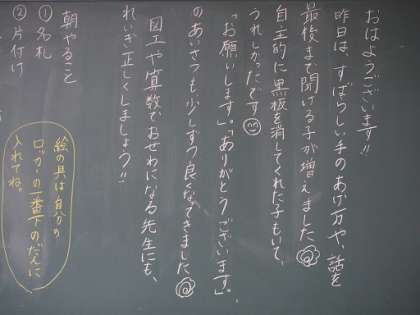 おはようございます!!
昨日は、すばらしい手のあげ方や、話を
最後まで聞ける子が増えました
自主的に黒板を消してくれた子もいて、
うれしかったです
「お願いします」。「ありがとうございます」。
のあいさつも、少しずつ良くなってきました
図工や算数でおせわになる先生にも、
れいぎ正しくしましょう!!
朝やること
①名札
②片付け
絵の具は自分の
ロッカーの一番下のだんに
入れてね。